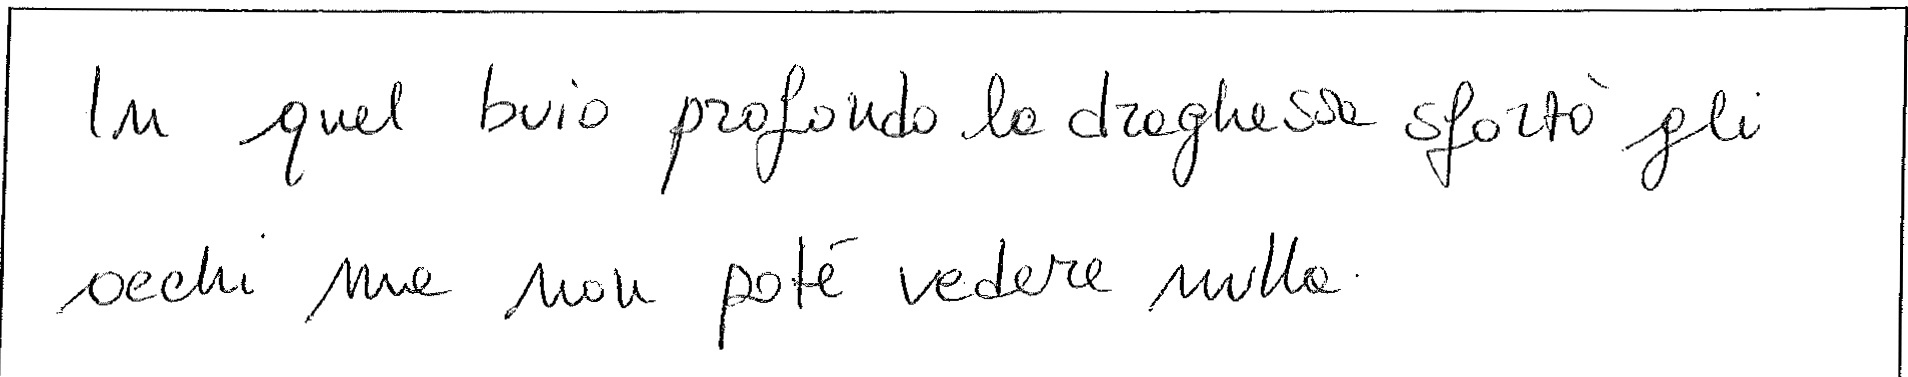 In quel buio profondo la draghessa sfortò gli
occhi ma non poté vedere nulla.